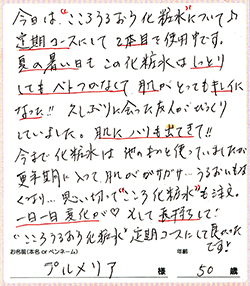 今日は、"こころうるおう化粧水"について♪
定期コースにして2本目で使用中です。
夏の暑い日もこの化粧水はしっとり
してもべとつかなくて肌がとってもキレイに
なった!! 久しぶりに会った友人がびっくり
していました。肌にハリも出てきて!!
今まで化粧水は他のものを使っていましたが
更年期に入って、肌がガサガサ…うるおいもなく
なり… 思い切って"こころ化粧水"も注文。
一日一日変化が♡ そして長持ちして!
"こころうるおう化粧水"定期コースにして良かった
です♪
お名前(本名 or ペンネーム) 年齢
プルメリア 様 50 歳